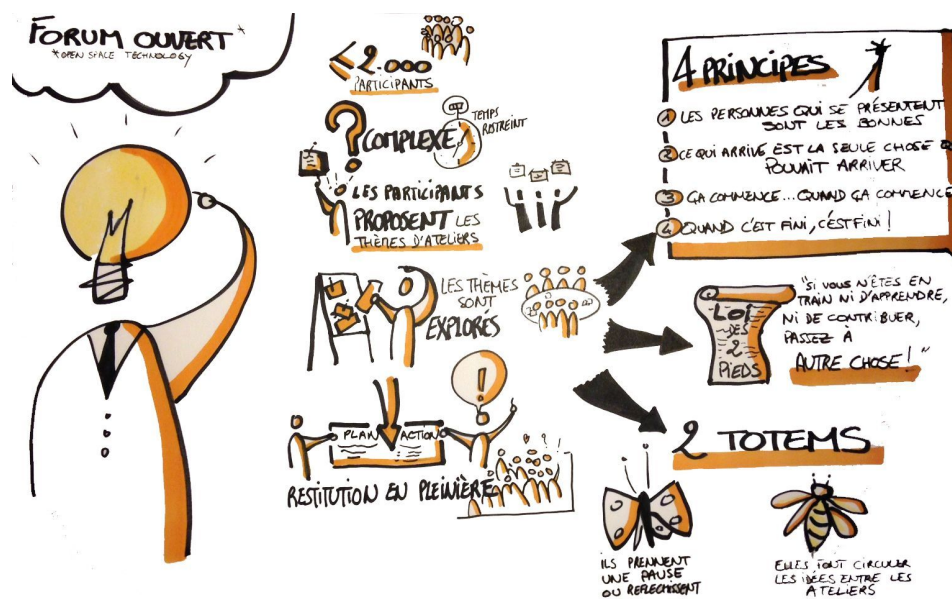 FORUM OUVERT*
*OPEN SPACE TECHNOLOGY
< 2.000
PARTICIPANTS
? COMPLEXE
TEMPS
RESTREINT
LES PARTICIPANTS
PROPOSENT LES
THÈMES D'ATELIERS
LES THÈMES
SONT
EXPLORÉS
!
PLAN ACTION
RESTITUTION EN PLEINIÈRE
4 PRINCIPES
1 LES PERSONNES QUI SE PRÉSENTENT
SONT LES BONNES
2 CE QUI ARRIVE EST LA SEULE CHOSE Q
POUVAIT ARRIVER
3 ÇA COMMENCE... QUAND ÇA COMMENCE
4 QUAND C'EST FINI, C'ÉST FINI !
LOI
DES
2
PIEDS
"SI VOUS N'ÊTES EN
TRAIN NI D'APPRENDRE,
NI DE CONTRIBUER,
PASSEZ À
AUTRE CHOSE ! "
2 TOTEMS
ILS PRENNENT
UNE PAUSE
OU REFLECHISSENT
ELLES FONT CIRCULER
LES IDÉES ENTRE LES
ATELIERS